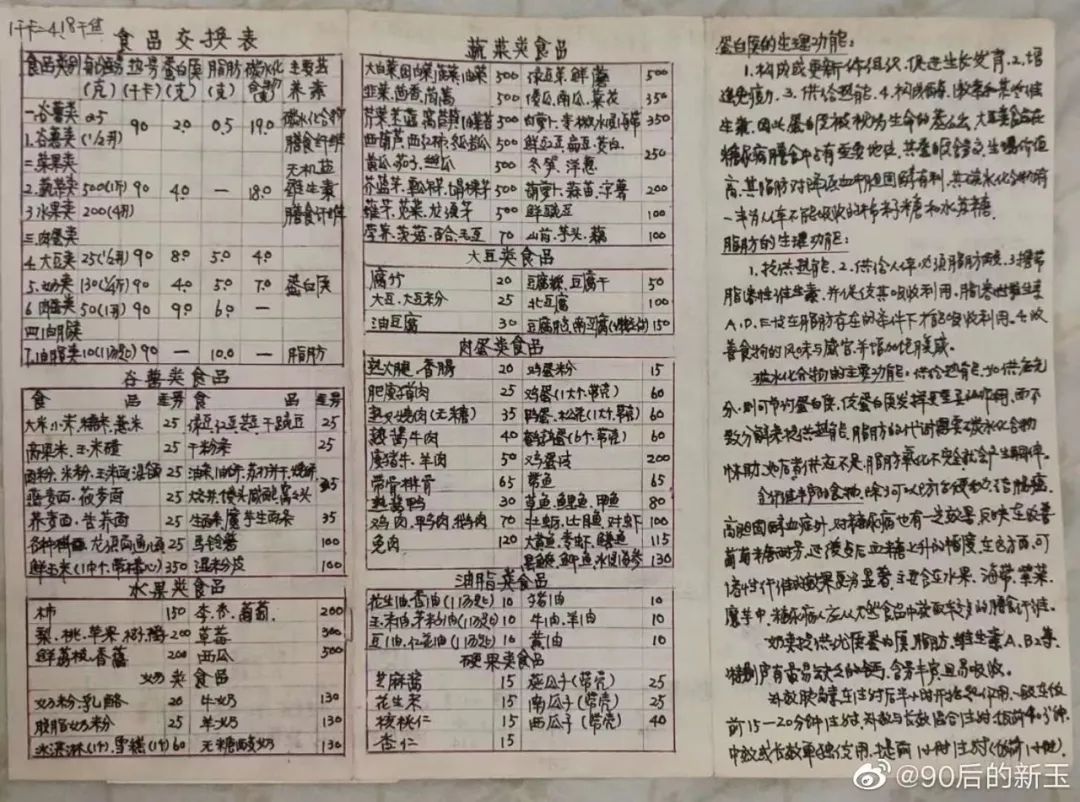 1千卡=4.18千焦
食品交换表
食品类别 每份重量(克) 热量(千卡) 蛋白质(克) 脂肪(克) 碳水化合物 主要营养素
一.谷薯类
1.谷薯类 25(1/2两) 90 2.0 0.5 19.0 碳水化合物 膳食纤维
二.菜果类 无机盐
2.蔬菜类 500(1斤) 90 4.0 — 18.0 维生素
3.水果类 200(4两) 膳食纤维
三.肉蛋类
4.大豆类 25(1/2两) 90 8.0 5.0 4.0
5.奶类 130 90 4.0 5.0 7.0 蛋白质
6.肉蛋类 50(1两) 90 9.0 6.0 —
四.油脂类
7.油脂类 10(1汤匙) 90 — 10.0 — 脂肪
谷薯类食品
食品 重号 食品 重号
大米、小米、糯米、薏米 25 绿豆、红豆、芸豆、干豌豆 25
高粱米、玉米碴 25 干粉条 25
面粉、米粉、玉米面、混合面 25 油条、油饼、苏打饼干、烧饼
燕麦面、莜麦面 25 馒头、咸面包、窝头 35
荞麦面、苦荞面 25 生面条、魔芋生面条 35
各种挂面、龙须面、通心粉 25 马铃薯 100
鲜玉米(1中个、带棒心) 350 湿米分皮 100
水果类食品
柿 150 李、杏、葡萄. 200
梨、桃、苹果、柑、橘 200 草莓 300
鲜荔枝、香蕉 200 西瓜 500
奶类食品
奶粉、乳酪 20 牛奶 130
脱脂奶粉 25 羊奶 130
冰淇淋(1个)、雪糕(1个) 60 无糖酸奶 130
蔬菜类食品
大白菜、圆白菜、菠菜、油菜 500 绿豆芽、鲜蘑 500
韭菜、茴香、茼蒿 500 倭瓜、南瓜、菜花 350
芹菜 500 白萝卜、茭白、水浸海带 350
西葫芦、西红柿、冬瓜、苦瓜 500 鲜豇豆、扁豆
黄瓜、茄子、丝瓜 500 冬笋、洋葱 250
500 胡萝卜、蒜苗 200
苋菜、龙须菜 500 鲜豌豆 100
荸荠、茨菇、百合、毛豆 70 山药、芋头、藕 100
大豆类食品
腐竹 20 豆腐丝、豆腐干 50
大豆、大豆粉 25 北豆腐 100
油豆腐 30 南豆腐 150
肉蛋类食品
熟火腿、香肠 20 鸡蛋粉 15
肥瘦猪肉 25 鸡蛋(1大个、带壳) 60
熟叉烧肉(无糖) 35 鸭蛋、松花(1大个、带壳) 60
熟酱牛肉 40 鹌鹑蛋(6个、带壳) 60
瘦猪牛、羊肉 50 鸡蛋清 200
带骨排骨 65 带鱼 65
熟酱鸭 30 草鱼、鲤鱼、甲鱼 80
鸡肉、鸭肉、鹅肉 70 牡蛎、比目鱼、对虾 100
兔肉 120 大黄鱼、青虾、鲢鱼 115
黑鲢、鲫鱼、水浸海参 130
油脂类食品
花生油、香油(1汤匙) 10 猪油 10
玉米油、菜籽油(1汤匙) 10 牛油、羊油 10
豆油、红花油(1汤匙) 10 黄油 10
硬果类食品
芝麻酱 15 葵瓜子(带壳) 25
花生米 15 南瓜子(带壳) 25
核桃仁 15 西瓜子(带壳) 40
杏仁 15
蛋白质的生理功能:
1.构成或更新体组织,促进生长发育.2.增
进免疫力.3.供给热能.4.构成
生素.因此蛋白质被视为生命的基础.大豆类食品在
糖尿病膳食中占有重要地位,其蛋白质含量多,生理价值
高,其脂肪对降低血中胆固醇有利,其碳水化合物有
一半为人体不能吸收的棉籽糖和水苏糖.
脂肪的生理功能:
1.提供热能.2.供给人体必须脂肪酸.3.携带
脂溶性维生素,并促使其吸收利用,脂溶性维生素
A、D、E.
善食物的风味与感官,并增加饱腹感.
碳水化合物的主要功能:供给热能,如供应充
分,则可节约蛋白质,使蛋白质发挥更重要的作用,而不
致分解来提供热能,脂肪的代谢需要碳水化合物
脂肪氧化不完全就会产生酮体.
含纤维丰富的食物,除了可以
高胆固醇血症外,对糖尿病也有一定效果,反映在改善
葡萄糖耐量,延缓餐后血糖上升的幅度,在这方面,可
溶性纤维的效果更为显著,主要含在水果、海带、紫菜、
魔芋中,糖尿病人应从天然食品中获取丰富的膳食纤维.
奶类提供优质蛋白质,脂肪,维生素A、B2等,
特别富有最易缺乏的钙,含量丰富且易吸收.
外效胰岛素在注射后半小时开始起作用,一般在饭
前15—20分钟注射,短效与长效混合注射(饭前40分钟
中效或长效单独使用,提前1小时注射(饭前1小时).
@90后的新玉